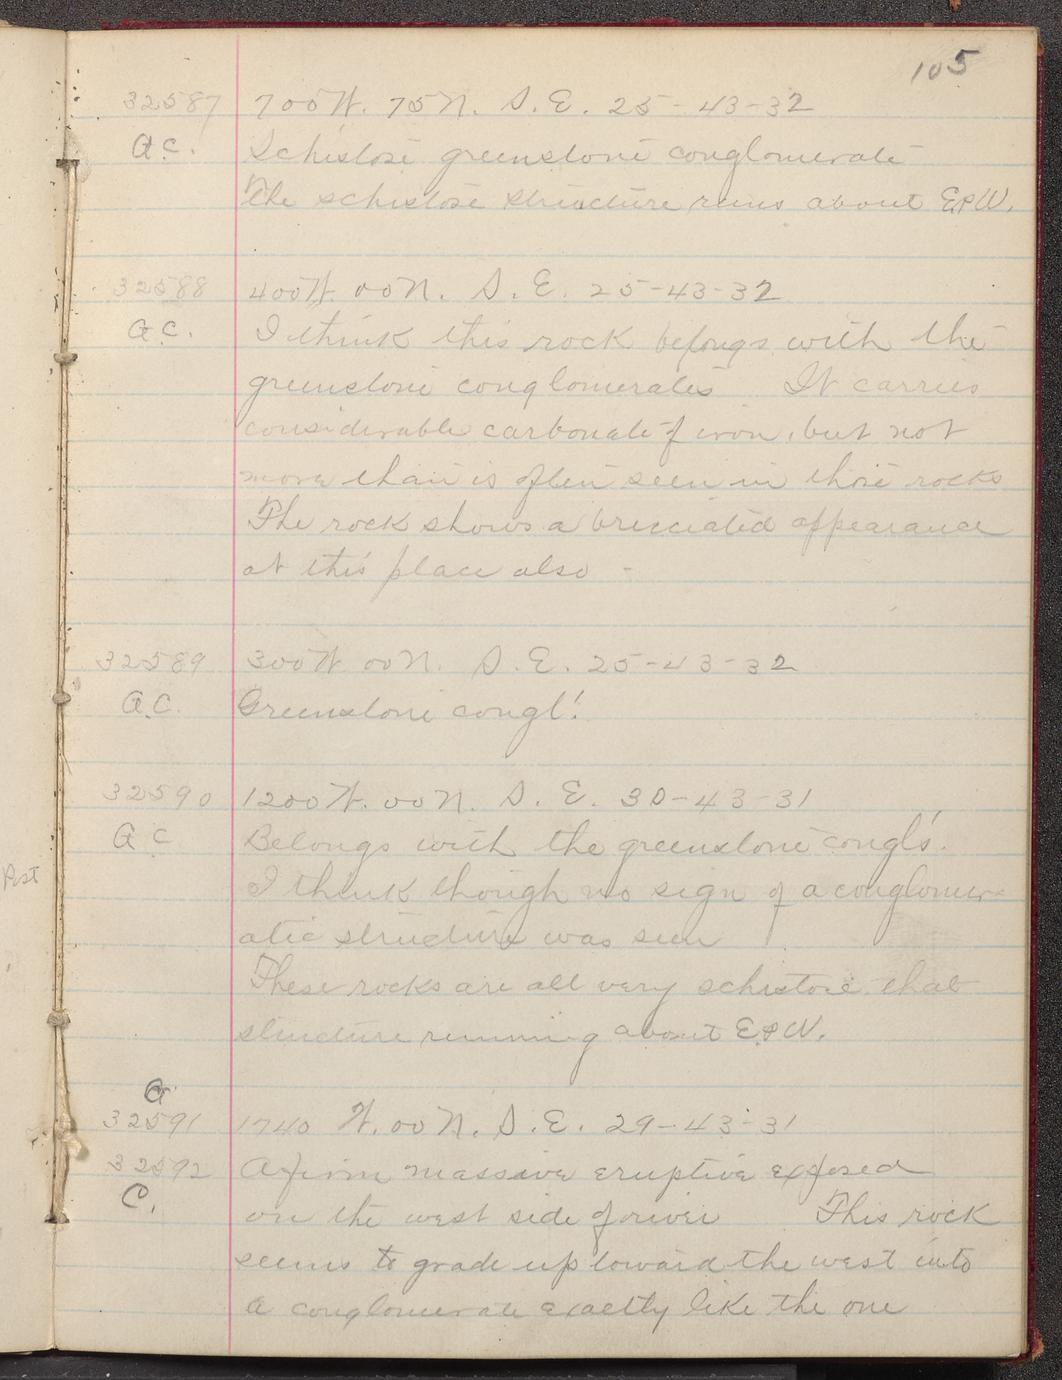 105
32587 700W. 75N. S.E. 25-43-32
a.c. Schistose greenstone conglomerate
The schistose structure runs about E&W.
32588 400W. 00N. S.E. 25-43-32
a.c. I think this rock belongs with the
greenstone conglomerates It carries
considerable carbonate of iron, but not
more than is often seen in those rocks
The rock shows a brecciated appearance
at this place also -
32589 300W. 00N. S.E. 25-43-32
a.c. Greenstone congl'.
32590 1200W. 00N. S.E. 30-43-31
a c Belongs with the greenstone congl's.
Post
I think though no sign of a conglomer-
atic structure was seen
These rocks are all very schistose that
structure running about E&W.
a
32591 1740 W. 00N. S.E. 29-43-31
32592 A firm massive eruptive exposed
C. on the west side of river This rock
seems to grade up toward the west into
a conglomerate exactly like the one